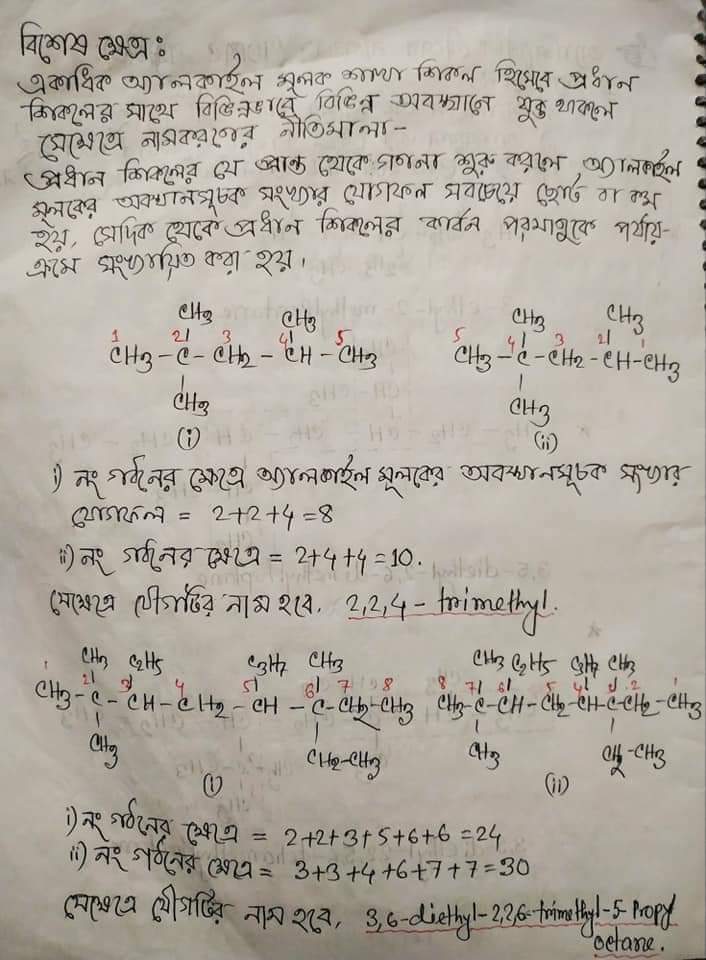 বিশেষ ক্ষেত্র :
একাধিক অ্যালকাইল মূলক শাখা শিকল হিসেবে প্রধান
শিকলের সাথে বিভিন্নভাবে বিভিন্ন অবস্থানে যুক্ত থাকলে
সেক্ষেত্রে নামকরণের নীতিমালা-
প্রধান শিকলের যে প্রান্ত থেকে গণনা শুরু করলে অ্যালকাইল
মূলকের অবস্থানসূচক সংখ্যার যোগফল সবচেয়ে ছোট বা কম
হয়, সেদিক থেকে প্রধান শিকলের কার্বন পরমাণুকে পর্যায়-
ক্রমে সংখ্যায়িত করা হয়।
CH3 CH3 CH3 CH3
1 2 3 4 5 5 4 3 2 1
CH3 - C - CH2 - CH - CH3 CH3 - C - CH2 - CH - CH3
CH3 CH3
(i) (ii)
i) নং গঠনের ক্ষেত্রে অ্যালকাইল মূলকের অবস্থানসূচক সংখ্যার
যোগফল = 2+2+4=8
ii) নং গঠনের ক্ষেত্রে = 2+4+4=10.
সেক্ষেত্রে যৌগটির নাম হবে, 2,2,4-trimethyl.
CH3 C2H5 C3H7 CH3 CH3 C2H5 C3H7 CH3
1 2 3 4 5 6 7 8 8 7 6 5 4 3 2 1
CH3 - C - CH - CH2 - CH - C - CH2 - CH3 CH3 - C - CH - CH2 - CH - C - CH2 - CH3
CH3 CH2-CH3 CH3 CH2-CH3
(i) (ii)
i) নং গঠনের ক্ষেত্রে = 2+2+3+5+6+6=24
ii) নং গঠনের ক্ষেত্রে = 3+3+4+6+7+7=30
সেক্ষেত্রে যৌগটির নাম হবে, 3,6-diethyl-2,2,6-trimethyl-5-Propyl
octane.